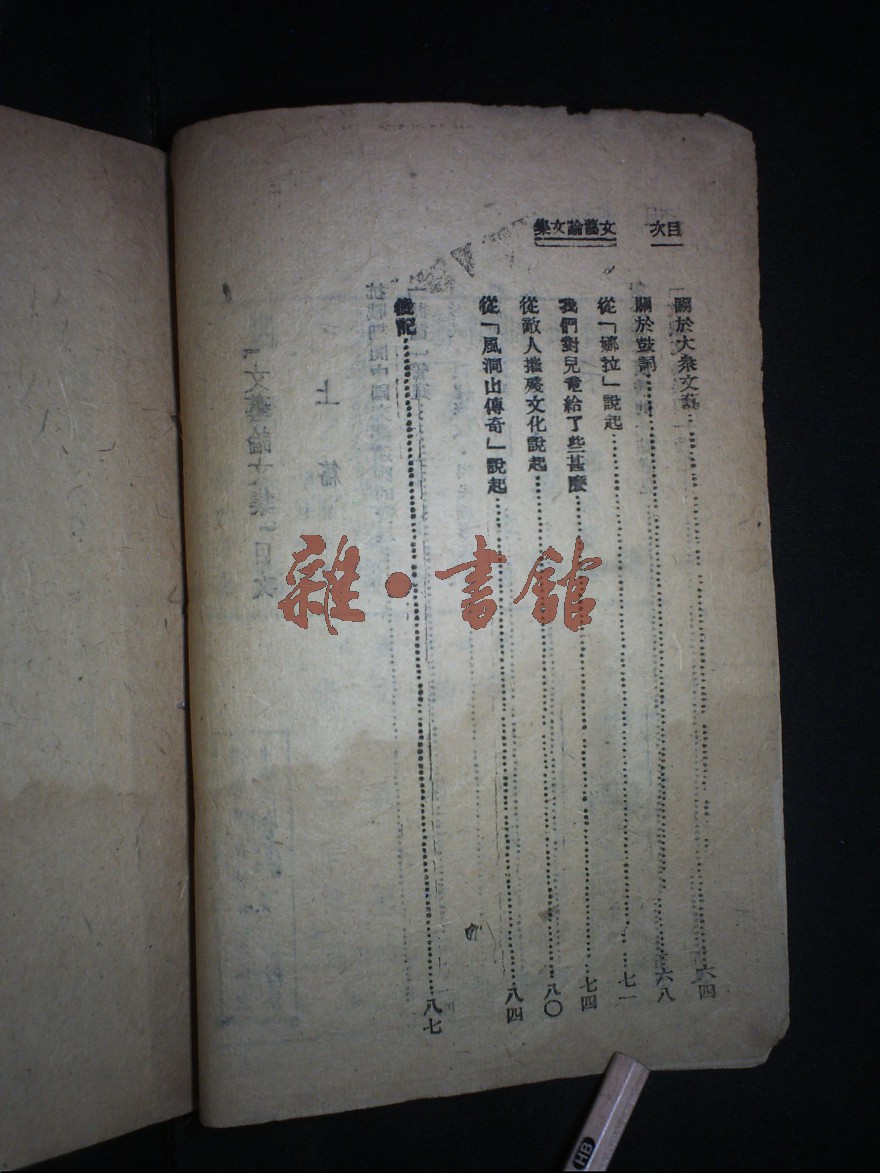 目次
文藝論文集
關於大衆文藝 六四
關於鼓詞 六八
從「娜拉」說起 七一
我們對兒童給了些甚麽 七四
從敵人摧殘文化說起 八〇
從「風洞山傳奇」說起 八四
後記 八七
雜·書館
「文藝論文集」目次
上篇
HB